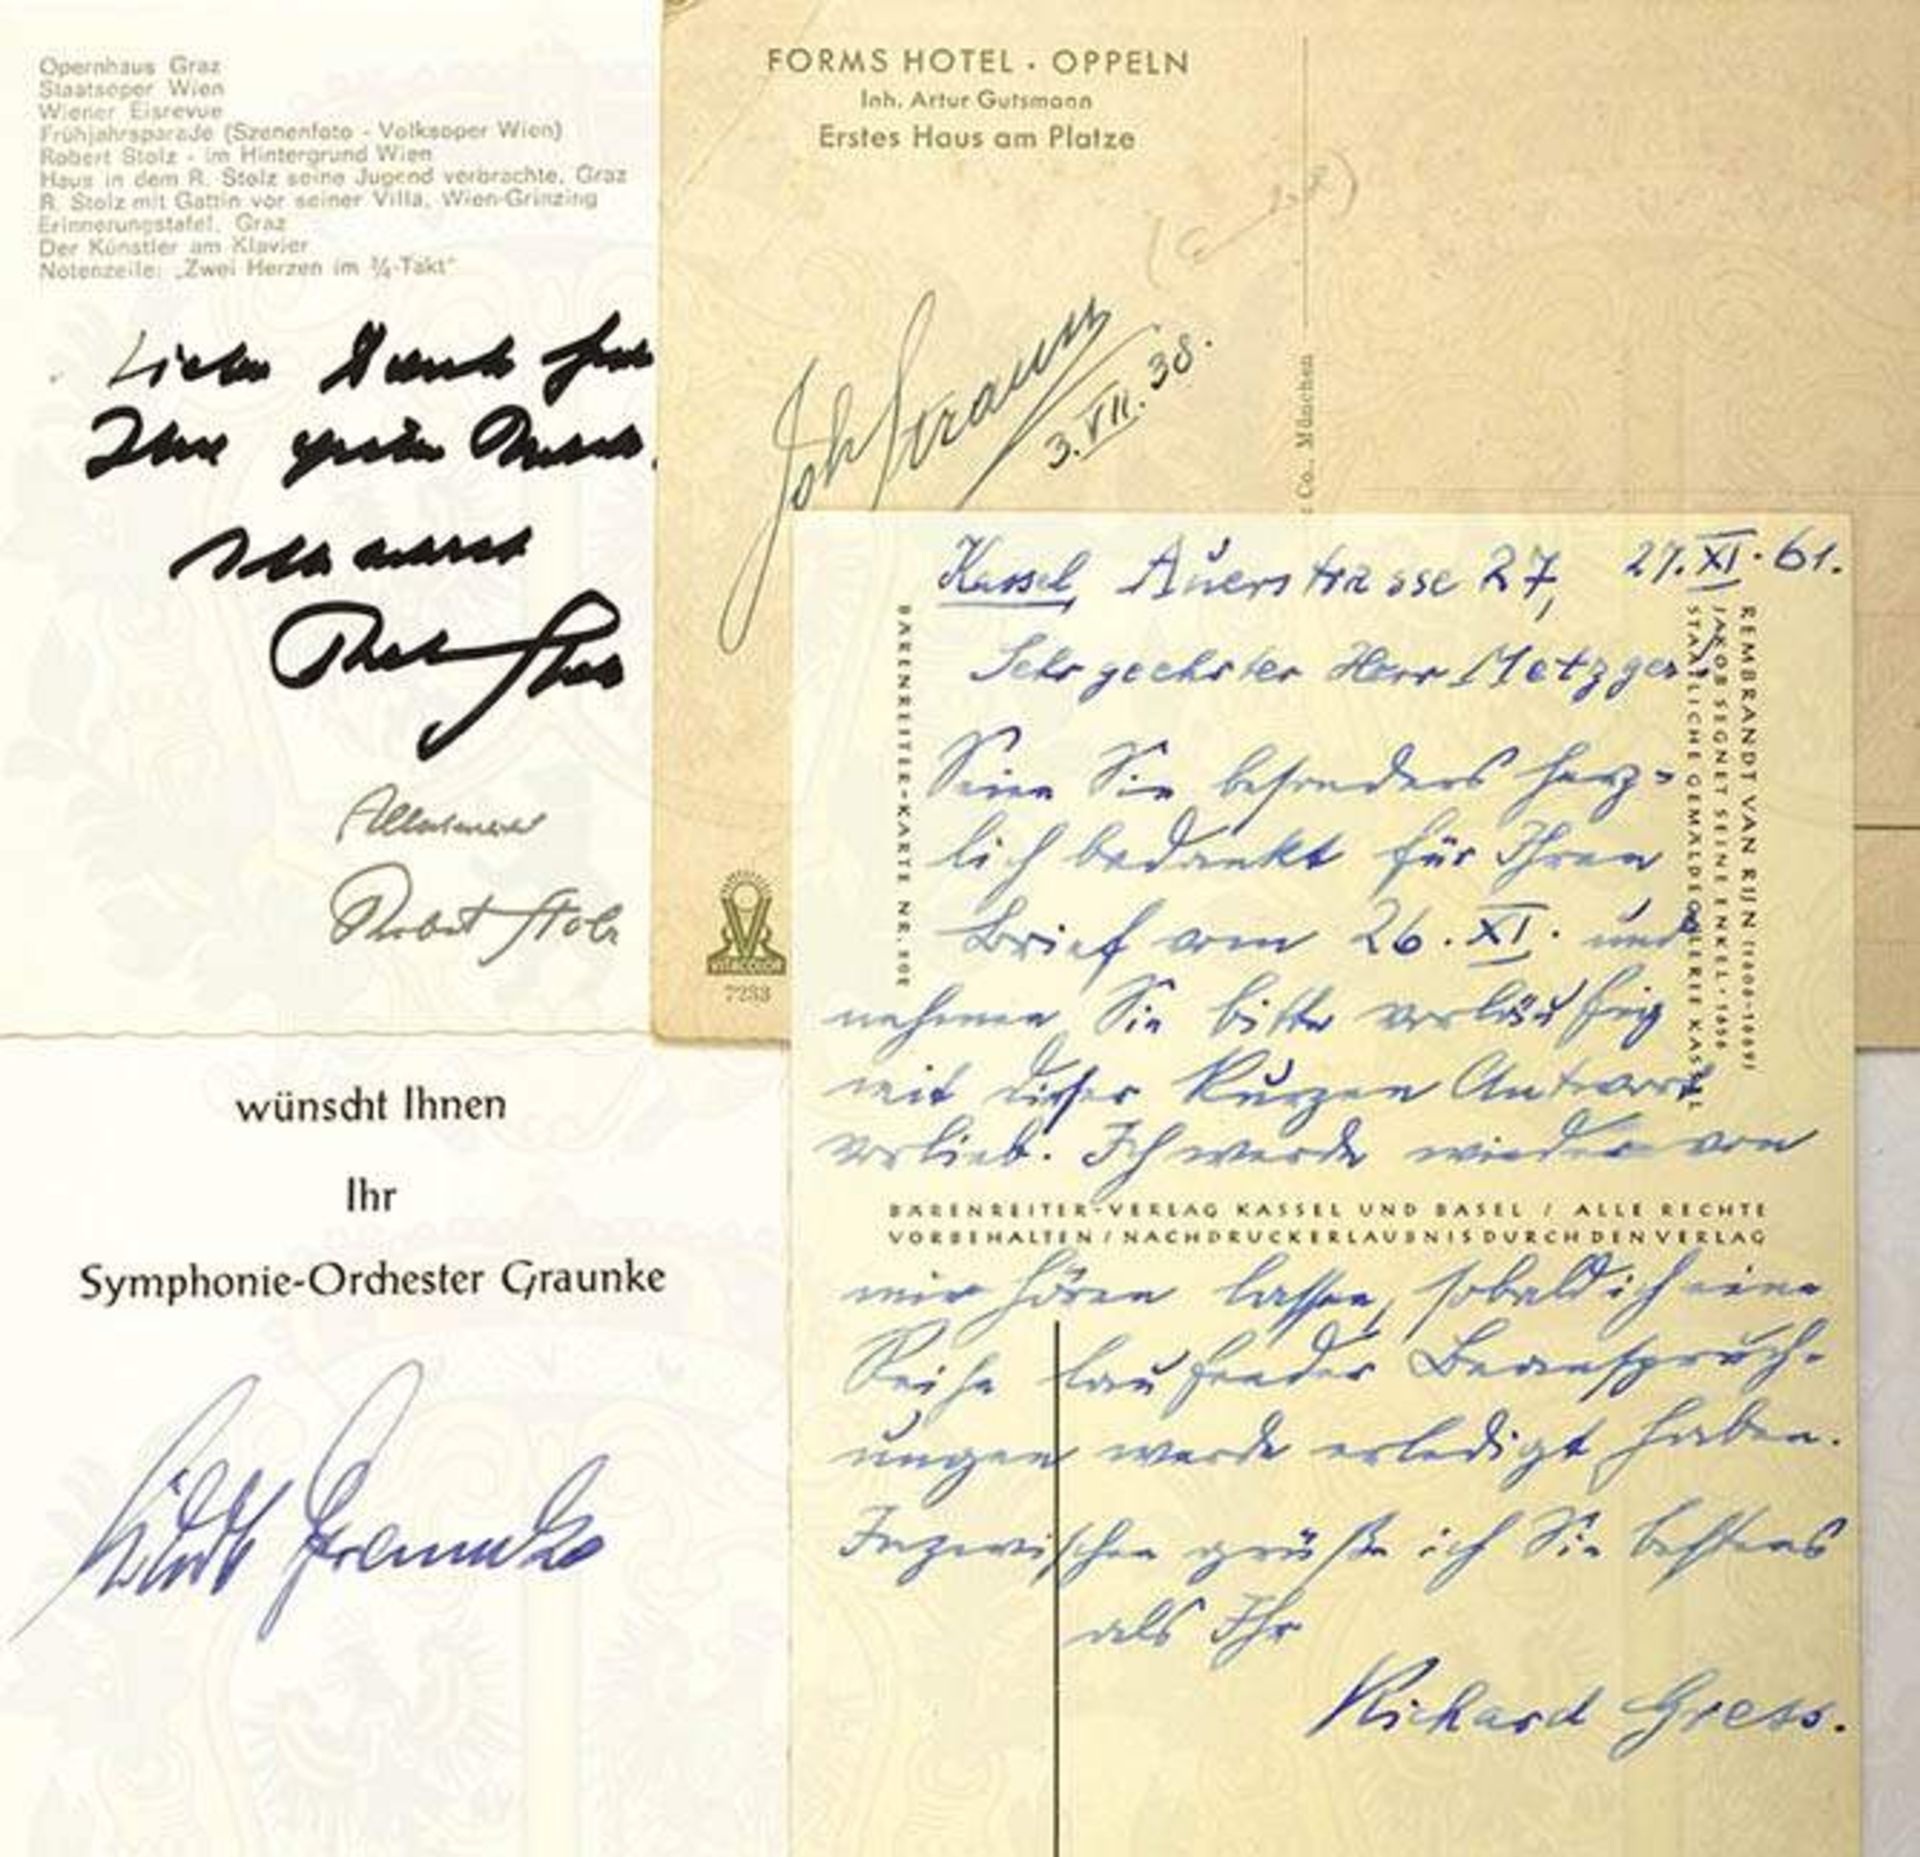 Opernhaus Graz
Staatsoper Wien
Wiener Eisrevue
Frühjahrsparade (Szenenfoto - Volksoper Wien)
Robert Stolz - im Hintergrund Wien
Haus in dem R. Stolz seine Jugend verbrachte, Graz
R. Stolz mit Gattin vor seiner Villa, Wien-Grinzing
Erinnerungstafel, Graz
Der Künstler am Klavier
Notenzeile: „Zwei Herzen im ¾-Takt"
Robert Stolz
FORMS HOTEL · OPPELN
Inh. Artur Gutsmann
Erstes Haus am Platze
Joh Strauss
3.VII.38.
Co., München
VITACOLOR
7233
wünscht Ihnen
Ihr
Symphonie-Orchester Graunke
Graunke
Kassel, Auerstrasse 27, 27.XI.61.
Sehr geehrter Herr Metzger!
Seien Sie besonders herz-
lich bedankt für Ihren
Brief vom 26.XI. und
nehmen Sie bitte vorläufig
mit dieser kurzen Antwort
vorlieb. Ich werde wieder von
mir hören lassen, sobald ich eine
Reihe laufender Beanspruch-
ungen werde erledigt haben.
Inzwischen grüße ich Sie bestens
als Ihr
Richard Gress.
BÄRENREITER-KARTE NR.
REMBRANDT VAN RIJN (1606-1669)
JAKOB SEGNET SEINE ENKEL · 1656
STAATLICHE GEMÄLDEGALERIE KASSEL
BÄRENREITER-VERLAG KASSEL UND BASEL / ALLE RECHTE
VORBEHALTEN / NACHDRUCKERLAUBNIS DURCH DEN VERLAG